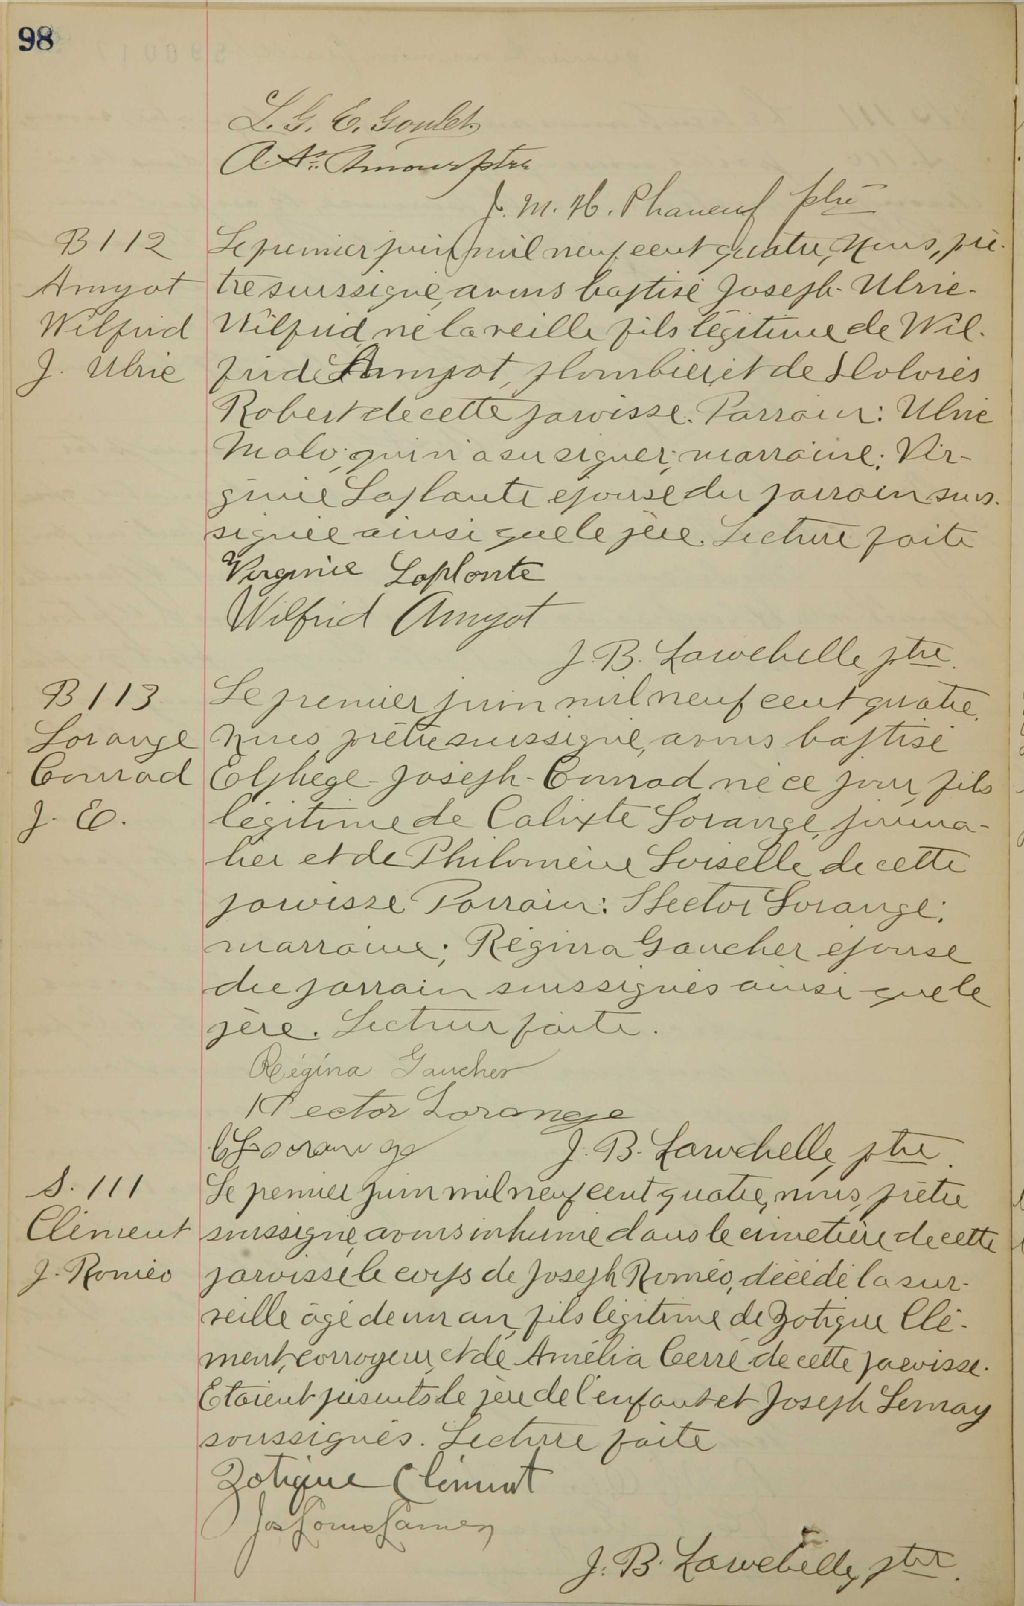 98
L. G. E. Goulet
A. St. Amour ptre
J. M. H. Phaneuf ptre
B 112
Amyot
Wilfrid
J. Ulric
Le premier juin mil neuf cent quatre, nous, prê-
tre soussigné, avons baptisé Joseph-Ulric-
Wilfrid, né la veille, fils légitime de Wil-
frid Amyot, plombier, et de Dolorès
Robert de cette paroisse. Parrain: Ulric
Malo, qui n'a su signer; marraine: Vir-
ginie Laplante épouse du parrain sous-
signée ainsi que le père. Lecture faite
Virginie Laplante
Wilfrid Amyot
J. B. Larochelle ptre.
B 113
Lorange
Conrad
J. E.
Le premier juin mil neuf cent quatre,
nous prêtre soussigné, avons baptisé
Elphège-Joseph-Conrad né ce jour, fils
légitime de Calixte Lorange, journa-
lier et de Philomène Loiselle de cette
paroisse Parrain: Hector Lorange;
marraine: Régina Gaucher épouse
du parrain soussignés ainsi que le
père. Lecture faite.
Régina Gaucher
Hector Lorange
C Lorange
J. B. Larochelle, ptre.
S. 111
Clément
J. Roméo
Le premier juin mil neuf cent quatre, nous, prêtre
soussigné, avons inhumé dans le cimetière de cette
paroisse le corps de Joseph Roméo, décédé la sur-
veille âgé de un an, fils légitime de Zotique Clé-
ment, corroyeur, et de Amélia Cerré de cette paroisse.
Etaient présents le père de l'enfant et Joseph Lemay
soussignés. Lecture faite
Zotique Clément
Jos Louis
J. B. Larochelle, ptre.